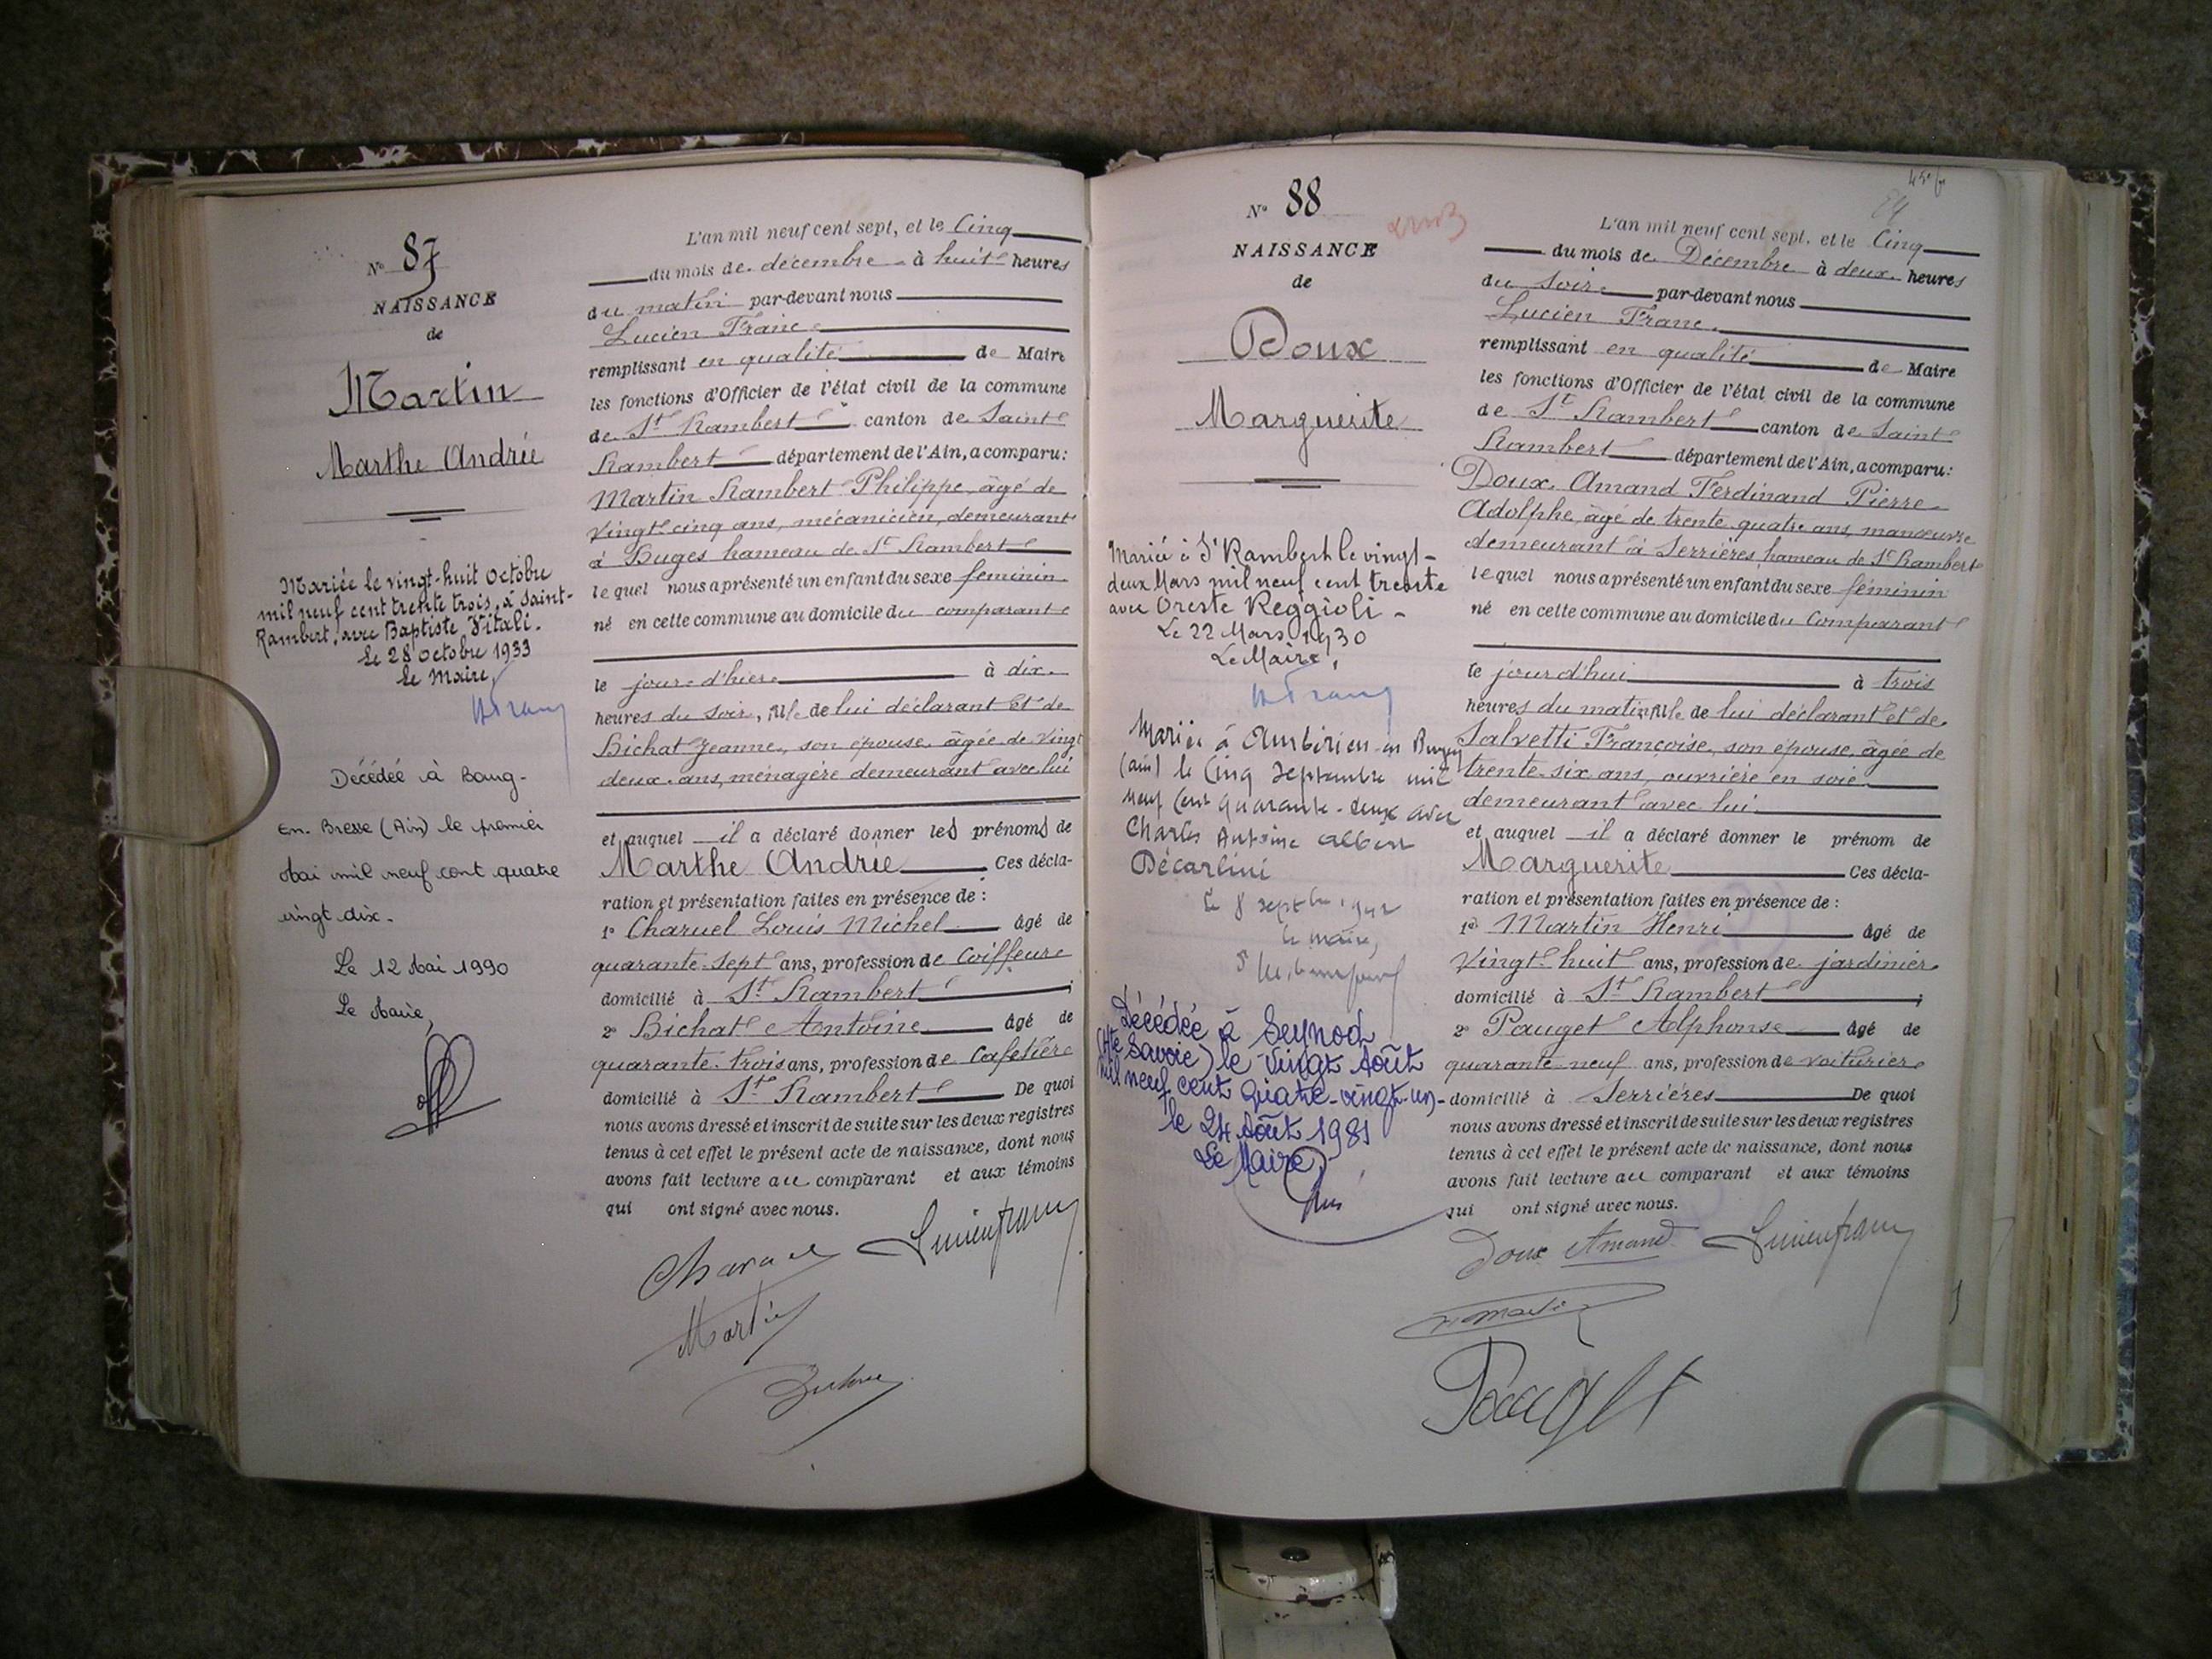 N° 87
NAISSANCE
de
Martin
Marthe Andrée
Mariée le vingt-huit Octobre
mil neuf cent trente trois, à Saint-
Rambert, avec Baptiste Vitali.
Le 28 octobre 1933
Le Maire,
Décédée à Bourg-
en-Bresse (Ain) le premier
Mai mil neuf cent quatre
vingt dix.
Le 12 Mai 1990
Le Maire,
L'an mil neuf cent sept, et le Cinq
du mois de décembre à huit heures
du matin par-devant nous
Lucien Franc
remplissant en qualité de Maire
les fonctions d'Officier de l'état civil de la commune
de St Rambert canton de Saint
Rambert département de l'Ain, a comparu:
Martin Rambert Philippe, âgé de
vingt cinq ans, mécanicien, demeurant
à Buges hameau de St Rambert
lequel nous a présenté un enfant du sexe féminin
né en cette commune au domicile du comparant
le jour d'hier à dix
heures du soir, fille de lui déclarant et de
Bichat Jeanne, son épouse âgée de vingt
deux ans, ménagère demeurant avec lui
et auquel il a déclaré donner les prénoms de
Marthe Andrée Ces décla-
ration et présentation faites en présence de :
1° Charvel Louis Michel âgé de
quarante-sept ans, profession de Coiffeur
domicilié à St Rambert ;
2° Bichat Antoine âgé de
quarante trois ans, profession de Cafetier
domicilié à St Rambert De quoi
nous avons dressé et inscrit de suite sur les deux registres
tenus à cet effet le présent acte de naissance, dont nous
avons fait lecture au comparant et aux témoins
qui ont signé avec nous.
Lucien franc
Martin
N° 88
NAISSANCE
de
Doux
Marguerite
Mariée à St Rambert le vingt-
deux Mars mil neuf cent trente
avec Oreste Reggioli -
Le 22 Mars 1930
Le Maire,
Mariée à Ambérieu en Bugey
(ain) le Cinq Septembre mil
neuf Cent quarante-deux avec
Charles Antoine Albert
Décarlini
Le 8 septbre 1942
le maire,
Décédée à Seynod
(Hte Savoie) le Vingt Août
mil neuf cent Quatre-vingt-un-
le 24 Août 1981
Le Maire,
L'an mil neuf cent sept, et le Cinq
du mois de Décembre à deux heures
du soir par-devant nous
Lucien Franc
remplissant en qualité de Maire
les fonctions d'Officier de l'état civil de la commune
de St Rambert canton de Saint
Rambert département de l'Ain, a comparu:
Doux Amand Ferdinand Pierre
Adolphe, âgé de trente quatre ans, manœuvre
demeurant à Serrières, hameau de St Rambert
lequel nous a présenté un enfant du sexe féminin
né en cette commune au domicile du Comparant
le jour d'hui à trois
heures du matin fille de lui déclarant et de
Salvetti Françoise, son épouse, âgée de
trente-six ans, ouvrière en soie
demeurant avec lui
et auquel il a déclaré donner le prénom de
Marguerite Ces décla-
ration et présentation faites en présence de :
1° Martin Henri âgé de
Vingt huit ans, profession de jardinier
domicilié à St Rambert ;
2° Pauget Alphonse âgé de
quarante neuf ans, profession de voiturier
domicilié à Serrières De quoi
nous avons dressé et inscrit de suite sur les deux registres
tenus à cet effet le présent acte de naissance, dont nous
avons fait lecture au comparant et aux témoins
qui ont signé avec nous.
Doux Amand Lucien franc
Martin
Pauget